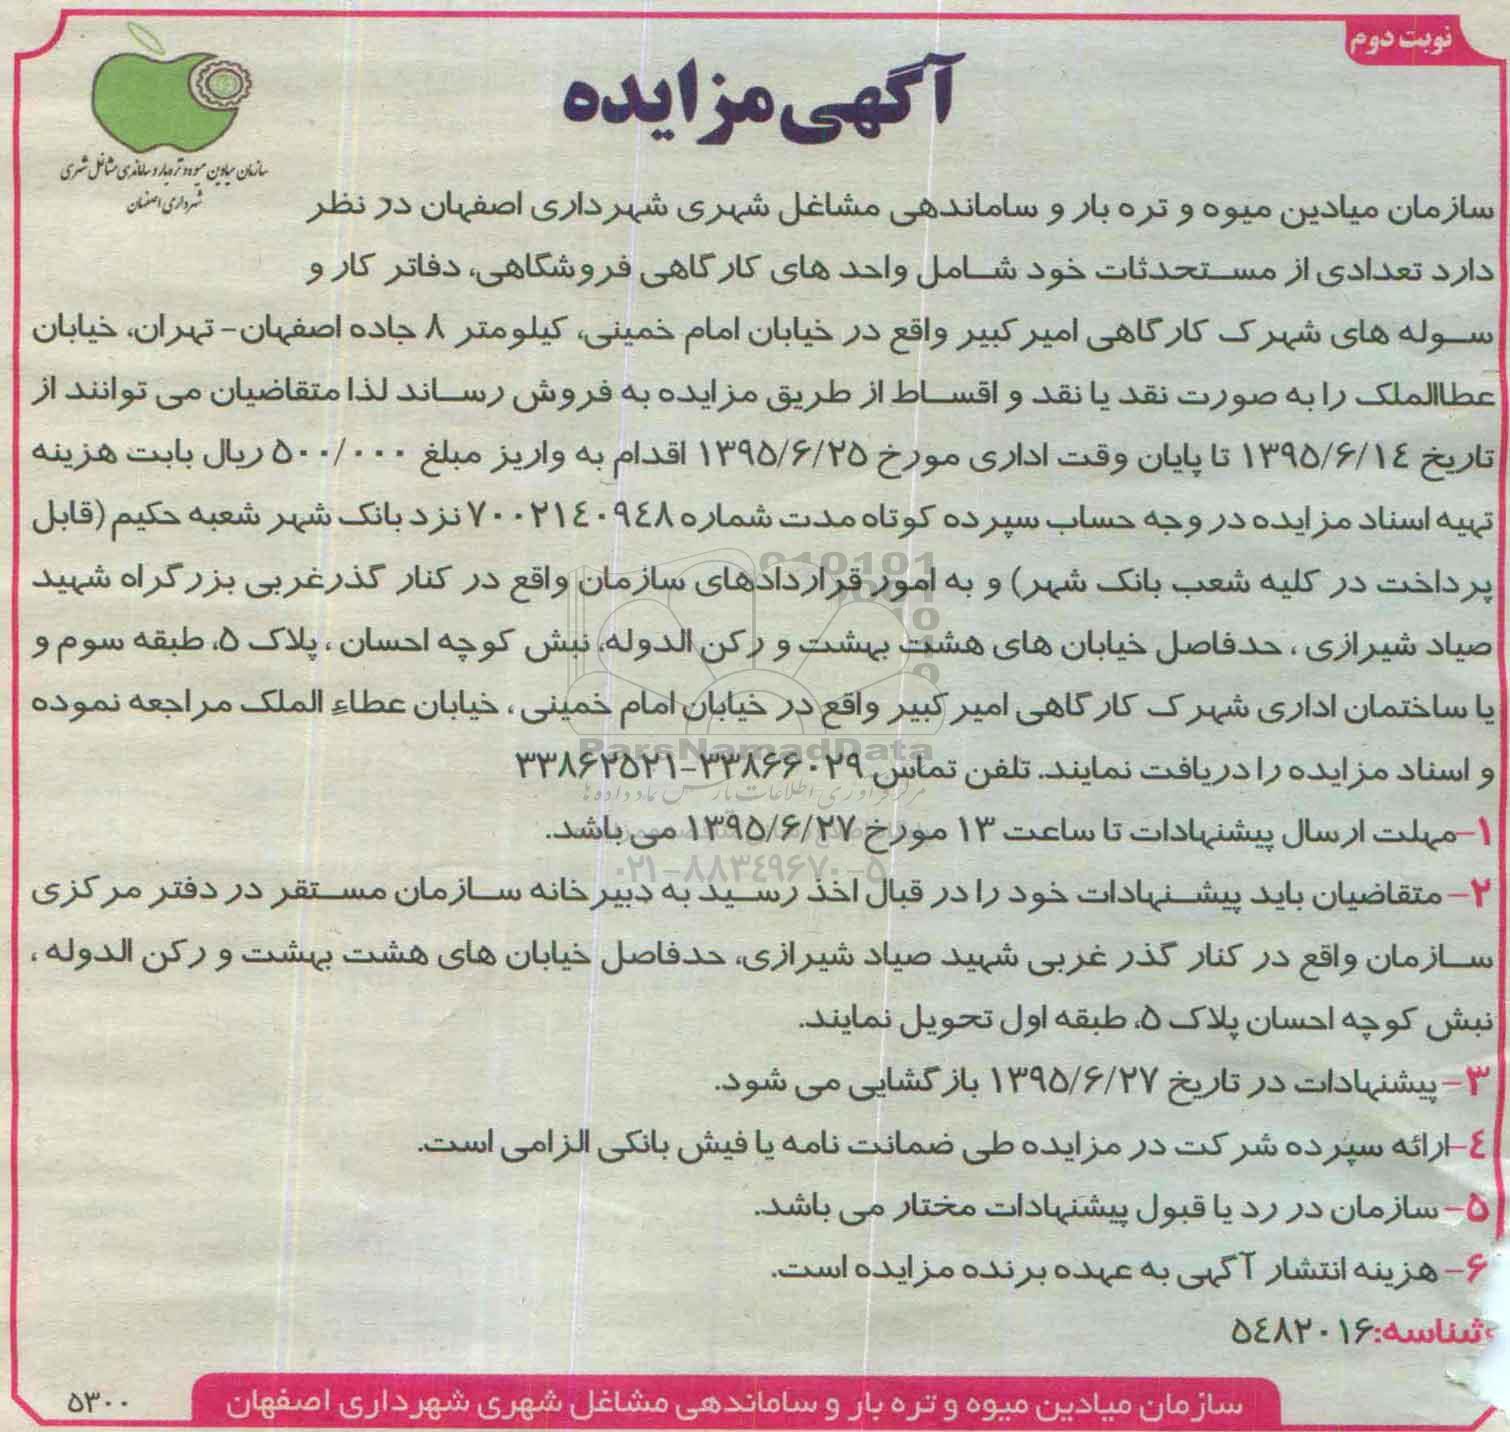 نوبت دوم
آگهی مزایده
سازمان میادین میوه و تره بار و ساماندهی مشاغل شهری
شهرداری اصفهان
سازمان میادین میوه و تره بار و ساماندهی مشاغل شهری شهرداری اصفهان در نظر
دارد تعدادی از مستحدثات خود شامل واحد های کارگاهی فروشگاهی، دفاتر کار و
سوله های شهرک کارگاهی امیرکبیر واقع در خیابان امام خمینی، کیلومتر ۸ جاده اصفهان-تهران، خیابان
عطاالملک را به صورت نقد یا نقد و اقساط از طریق مزایده به فروش رساند لذا متقاضیان می توانند از
تاریخ ۱۳۹۵/۶/۱۴ تا پایان وقت اداری مورخ ۱۳۹۵/۶/۲۵ اقدام به واریز مبلغ ۵۰۰/۰۰۰ ریال بابت هزینه
تهیه اسناد مزایده در وجه حساب سپرده کوتاه مدت شماره ۷۰۰۲۱۴۰۹۴۸ نزد بانک شهر شعبه حکیم (قابل
پرداخت در کلیه شعب بانک شهر) و به امور قراردادهای سازمان واقع در کنار گذرغربی بزرگراه شهید
صیاد شیرازی ، حدفاصل خیابان های هشت بهشت و رکن الدوله، نبش کوچه احسان ، پلاک ۵، طبقه سوم و
یا ساختمان اداری شهرک کارگاهی امیرکبیر واقع در خیابان امام خمینی ، خیابان عطاء الملک مراجعه نموده
و اسناد مزایده را دریافت نمایند. تلفن تماس ۳۳۸۶۶۰۲۹-۳۳۸۶۲۵۲۱
۱-مهلت ارسال پیشنهادات تا ساعت ۱۳ مورخ ۱۳۹۵/۶/۲۷ می باشد.
۲- متقاضیان باید پیشنهادات خود را در قبال اخذ رسید به دبیرخانه سازمان مستقر در دفتر مرکزی
سازمان واقع در کنار گذر غربی شهید صیاد شیرازی، حدفاصل خیابان های هشت بهشت و رکن الدوله ،
نبش کوچه احسان پلاک ۵، طبقه اول تحویل نمایند.
۳- پیشنهادات در تاریخ ۱۳۹۵/۶/۲۷ بازگشایی می شود.
۴-ارائه سپرده شرکت در مزایده طی ضمانت نامه یا فیش بانکی الزامی است.
۵- سازمان در رد یا قبول پیشنهادات مختار می باشد.
۶- هزینه انتشار آگهی به عهده برنده مزایده است.
شناسه:۵۴۸۲۰۱۶
سازمان میادین میوه و تره بار و ساماندهی مشاغل شهری شهرداری اصفهان
۵۳۰۰
ParsNamadData
۰۲۱-۸۸۳۴۹۶۷۰-۵